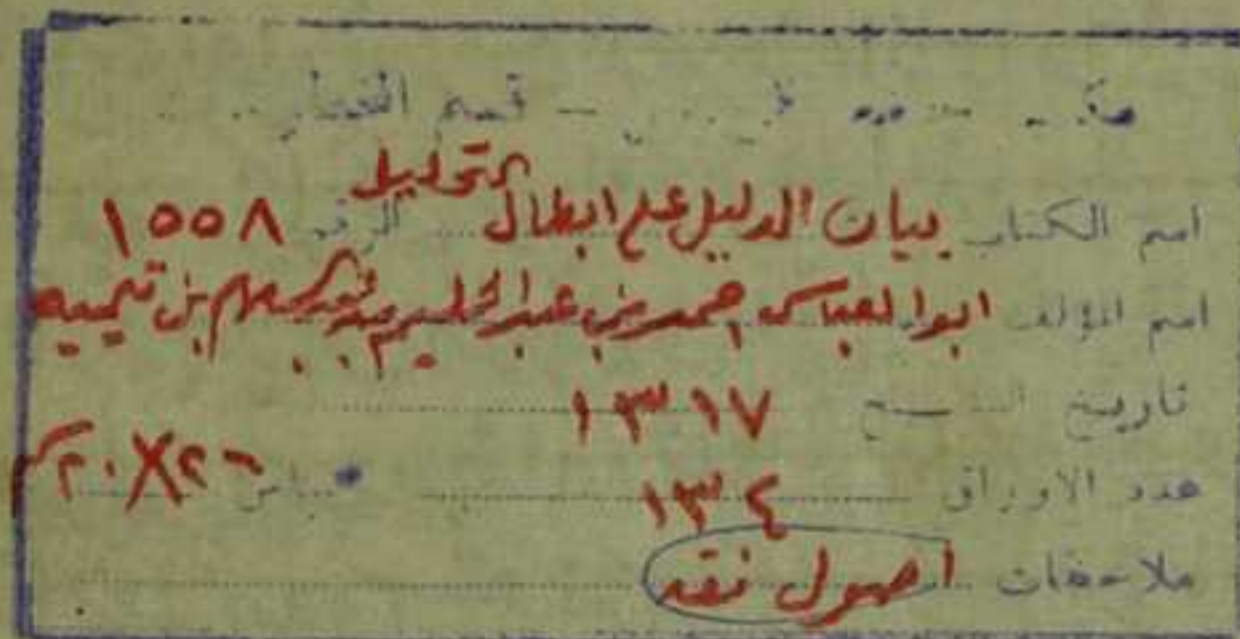 قسم المخطوطات
اسم الكتاب بيان الدليل على ابطال التحليل الرقم ١٥٥٨
اسم المؤلف ابو العباس احمد بن عبد الحليم بن عبد السلام بن تيميه
تاريخ النسخ ١٣١٧
عدد الاوراق ١٣٤ قياس ٢٦×٢٠ سم
ملاحظات اصول فقه